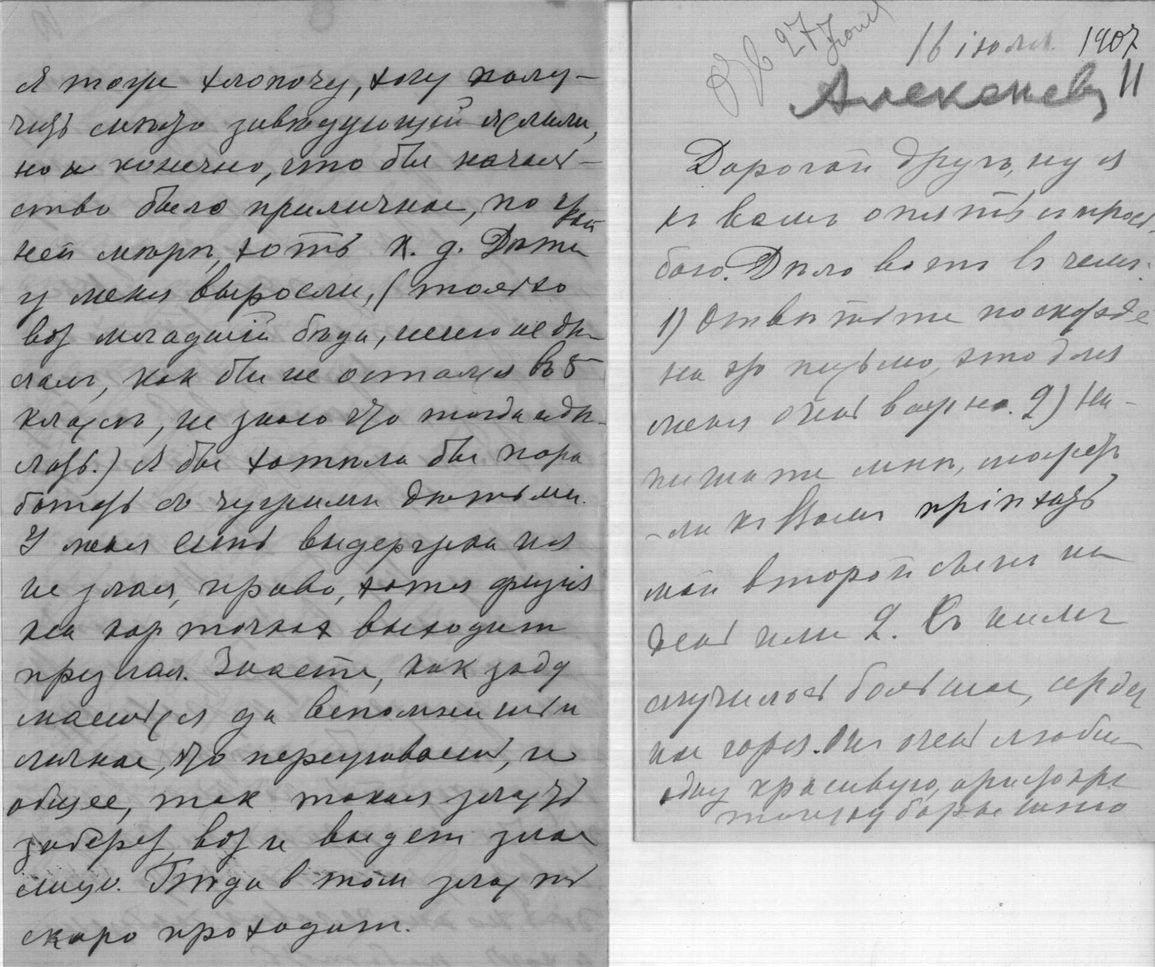 Я тоже хлопочу, хочу полу-
чить место заведующей яслями,
но и конечно, что бы началь-
ство было приличное, по край
ней мѣрѣ, хоть К. д. Дѣти
у меня выросли, (только
вот младшій бѣда, ничего не дѣ
лал, как бы не остался въ 5
классѣ, не знаю что тогда дѣ-
лать.) Я бы хотѣла бы пора
ботать съ чужими дѣтьми.
У меня есть выдержка и я
не злая, право, хотя физія
на карточках выходит
презлая. Знаете, как заду
маешься да вспомнишь и
личное, что переживаешь, и
общее, так такая злость
заберет, вот и выдет злое
лицо. Бѣда в том злость
скоро проходит.
Отв 27 Июля
16 июля 1907
Алексеев 11
Дорогой другъ, ну я
къ вамъ опять съ прось
бою. Дѣло вотъ въ чемъ.
1) Отвѣтьте поскорѣе
на это письмо, это для
меня очень важно. 2) На-
пишите мнѣ, может
-ли къ Вамъ пріѣхать
мой второй сынъ на
день или 2. Съ нимъ
случилось большое, сердеч
ное горе. Он очень любил
одну красивую, аристокра
точку барышню